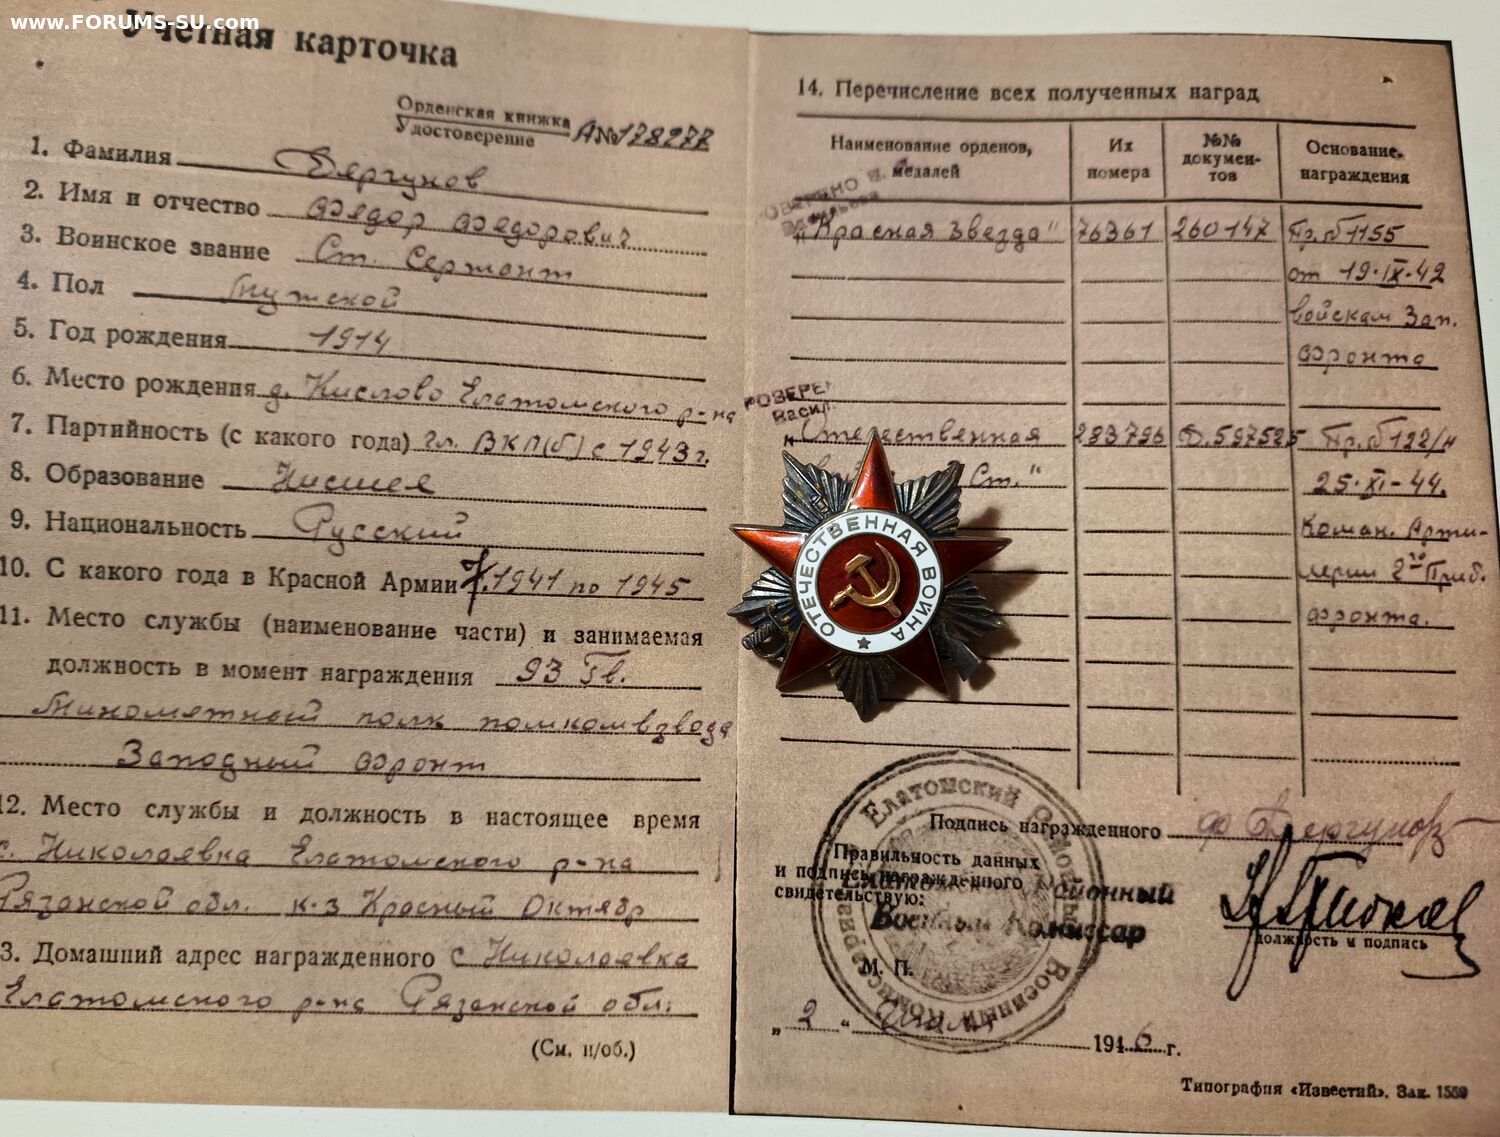 www.FORUMS-SU.com
Учетная карточка
Орденская книжка
Удостоверение А№178277
1. Фамилия Дергунов
2. Имя и отчество Федор Федорович
3. Воинское звание Ст. Сержант
4. Пол Мужской
5. Год рождения 1914
6. Место рождения д. Кислово Елатомского р-на
7. Партийность (с какого года) Чл. ВКП(б) с 1943 г.
8. Образование Низшее
9. Национальность Русский
10. С какого года в Красной Армии 1941 по 1945
11. Место службы (наименование части) и занимаемая
должность в момент награждения 93 Гв.
Минометный полк помкомвзвода
Западный фронт
12. Место службы и должность в настоящее время
с. Николаевка Елатомского р-на
Рязанской обл. к-з Красный Октябр
13. Домашний адрес награжденного с Николаевка
Елатомского р-на Рязанской обл.
(См. н/об.)
14. Перечисление всех полученных наград
Наименование орденов, медалей
Их номера
№№ докумен-тов
Основание награждения
"Красная Звезда" 76361 260147 Пр. № 1155
от 19.IX.42
войскам Зап.
фронта
"Отечественная 283796 Д.597525 Пр. № 122/н
Ст." 25.XI-44.
Коман. Арти-
лерии 2го Приб.
фронта.
ОТЕЧЕСТВЕННАЯ ВОЙНА
Подпись награжденного Дергунов
Правильность данных
и подписи награжденного
свидетельствую:
Елатомский Районный
Военный Комиссар
должность и подпись
М. П.
"2" 1946 г.
Типография «Известий». Зак. 1559